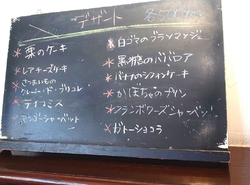 デザート 各500円
＊栗のケーキ
＊レアチーズケーキ
＊さつまいもの
クレーム・ド・ブリュレ
＊テイラミス
＊マンゴーシャーベット
＊白ゴマのブランマンジェ
＊黒糖のババロア
＊バナナのシフォンケーキ
＊かぼちゃのプリン
＊フランボワーズシャーベット
＊ガトーショコラ